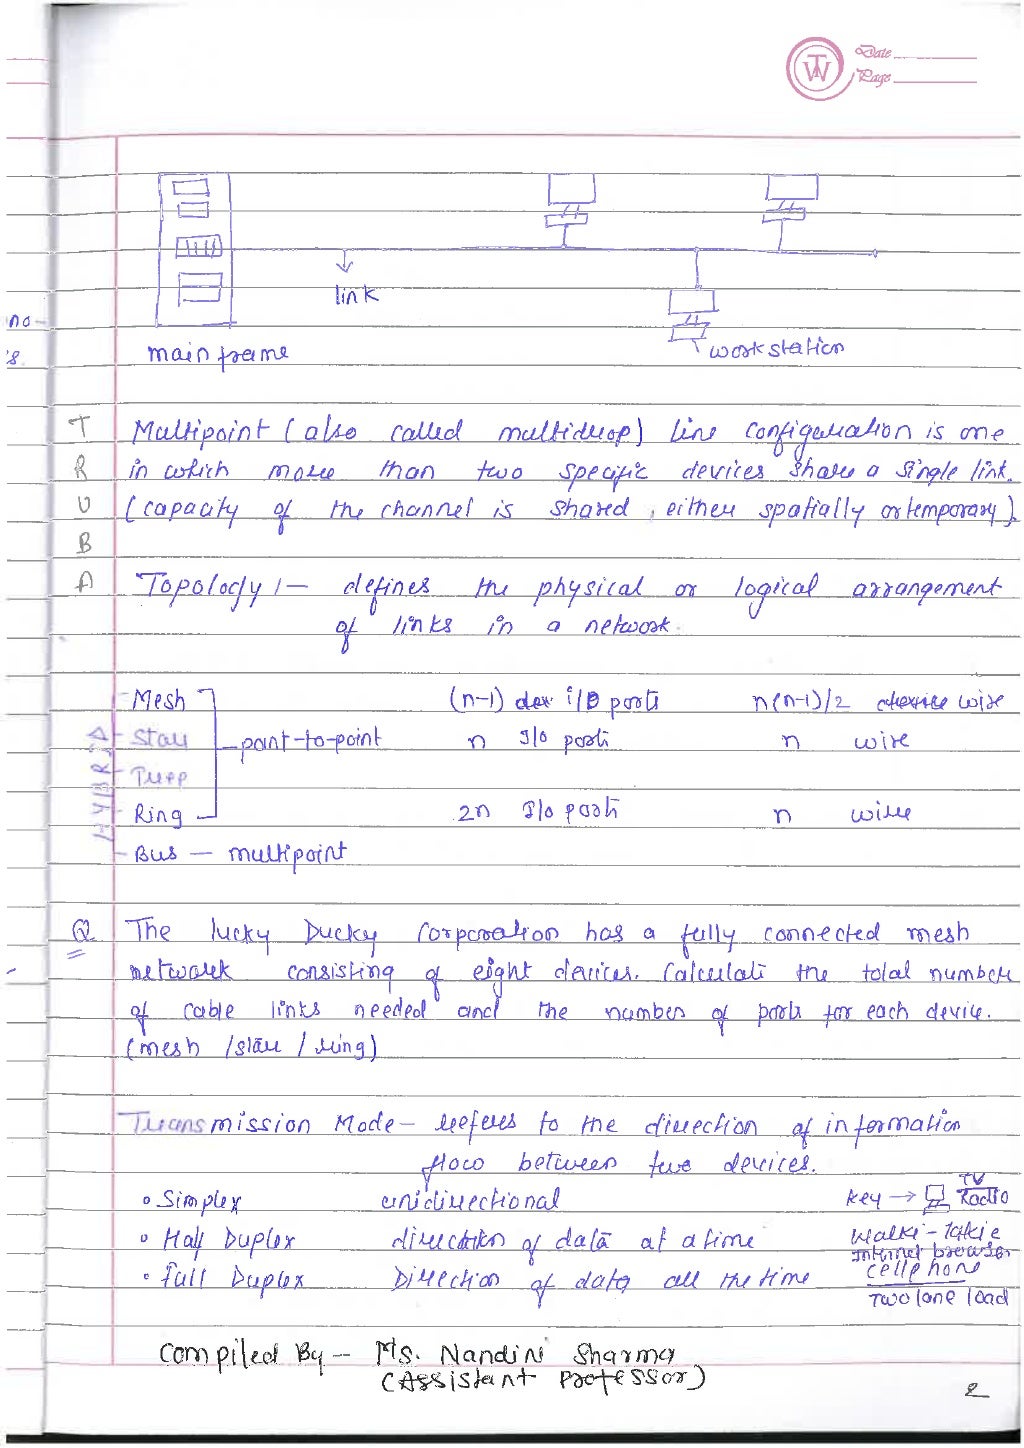 TW
Date
Page
link
no-
's
mainframe
workstation
T
R
U
B
A
Multipoint (also called multidrop) line configuration is one
in which more than two specific devices share a single link.
(capacity of the channel is shared, either spatially or temporary)
Topology :- defines the physical or logical arrangement
of links in a network.
Mesh (n-1) i/o ports n(n-1)/2 wire
Star point-to-point n I/o ports n wire
Tree
Ring 2n I/o ports n wire
Bus - multipoint
HYBRID
Q The lucky Ducky Corporation has a fully connected mesh
network consisting of eight devices. Calculate the total number
of cable links needed and the number of ports for each device.
(mesh /star / ring)
Transmission Mode - referes to the direction of information
flow between two devices.
• Simplex unidirectional key → TV Radio
• Half Duplex direction of data at a time Walki-talkie
Internet browser
• Full Duplex Direction of data all the time cellphone
Two lane load
Compiled By - Ms. Nandini Sharma
(Assistant Professor)
2